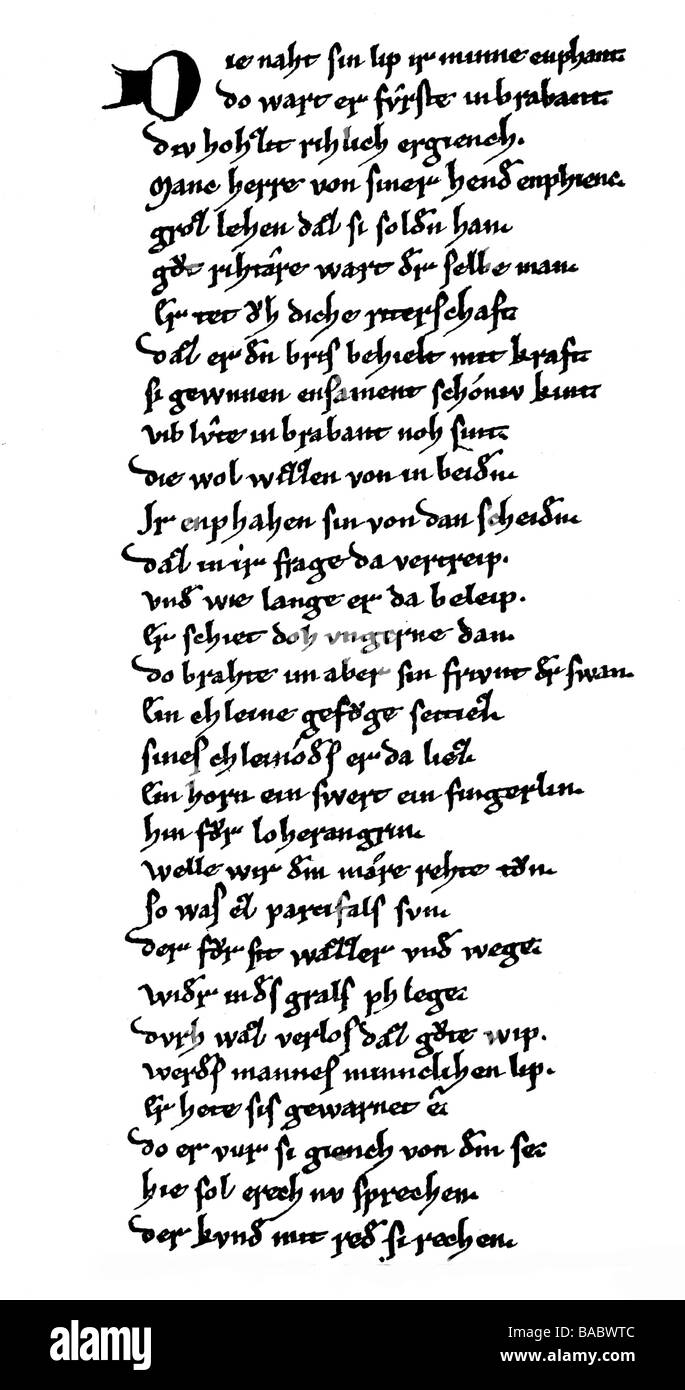 Die naht sin lip ir minne enphant.
do wart er fv̂rste in brabant.
div hohzit rihlich ergiench.
Manc herre von siner hend enphienc.
groz lehen daz si soldn han.
gůt rihtære wart dˢr selbe man.
Er tet ŏh diche riterschaft
daz er dn bris behielt mit kraft.
si gewnnen ensament schóniv kint.
vil lv̂te in brabant noh sint.
die wol wizzen von in beidn.
Ir enphahen sin von dan scheidn.
daz in ir frage da vertreip.
vnd wie lange er da beleip.
Er schiet doh vngerne dan.
do brahte im aber sin frivnt dˢr swan.
Ein chleine gefůge seitiez.
sines chleinódˢs er da liez.
Ein horn ein swert ein fingerlin.
hin fůr loherangrin.
welle wir dˢm mǽre rehte tůn.
so was ez parcifals svn.
der fůr sit wazzer vnd wege.
widˢr in dˢs grals phlege.
dvrh waz verlos daz gůte wip.
werdˢs mannes minnelichen lip.
Er hete sis gewarnet ê.
do er vur si giench von dˢm se.
hie sol erech nv sprechen.
der kvnd mit red si rechen.
alamy
Image ID: BABWTC
www.alamy.com